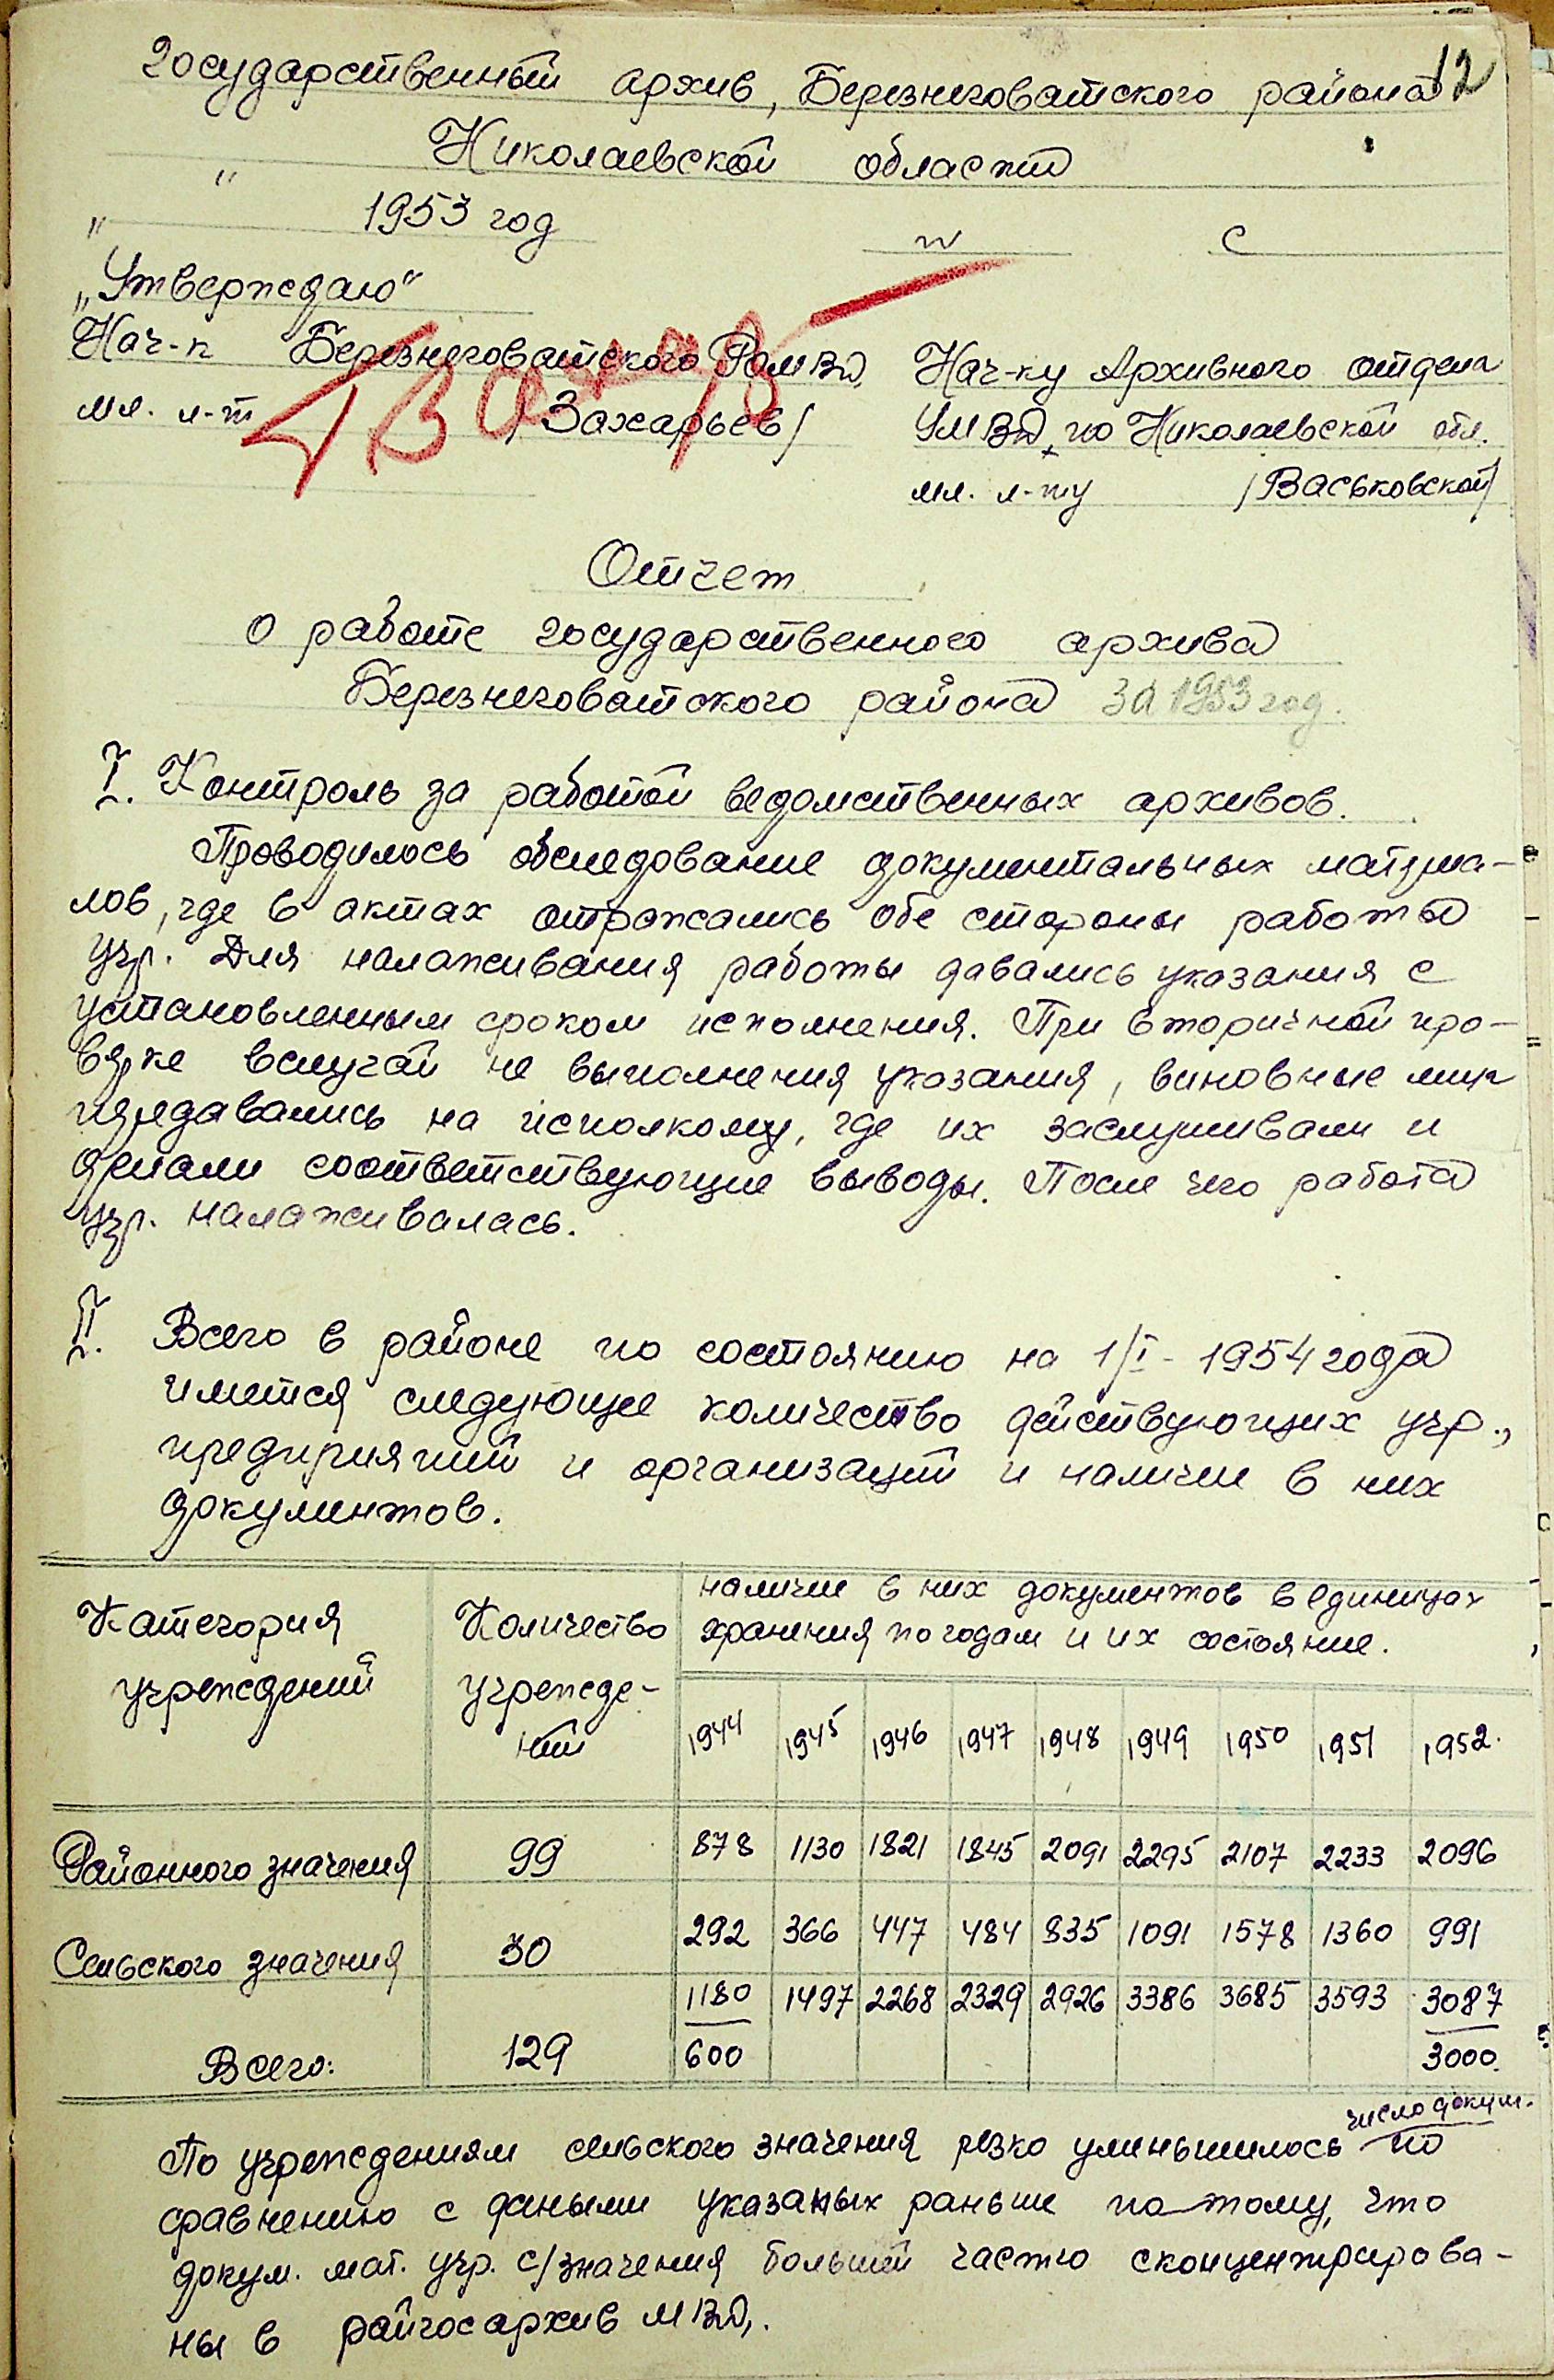 12
Государственный архив, Березнеговатского района
Николаевской области
1953 год
„Утверждаю“
Нач-к Березнеговатского РОМВД,
мл. л-т /Захарьев/
Нач-ку Архивного отдела
УМВД, по Николаевской обл.
мл. л-ту /Васьковской/
Отчет
о работе государственного архива
Березнеговатского района за 1953 год.
I. Контроль за работой ведомственных архивов.
Проводилось обследование документальных материа-
лов, где в актах отражались обе стороны работы
учр. Для налаживания работы давались указания с
установленным сроком исполнения. При вторичной про-
верке вслучай не выполнения указания, виновные лица
передавались на исполкому, где их заслушивали и
делали соответствующие выводы. После чего работа
учр. налаживалась.
II. Всего в районе по состоянию на 1/I - 1954 года
имется следующее количество действующих учр.,
предприятий и организаций и наличие в них
документов.
Категория учреждений | Количество учрежде-ний | наличие в них документов в единицах
хранения по годам и их состояние.
1944 1945 1946 1947 1948 1949 1950 1951 1952.
Районного значения 99 878 1130 1821 1845 2091 2295 2107 2233 2096
Сельского значения 30 292 366 447 484 835 1091 1578 1360 991
1180 1497 2268 2329 2926 3386 3685 3593 3087
Всего: 129 600 3000.
число докум.
По учреждениям сельского значения резко уменьшилось по
сравнению с даными указаных раньше по тому, что
докум. мат. учр. с/значения большей частю сконцентрирова-
ны в райгосархив МВД,.